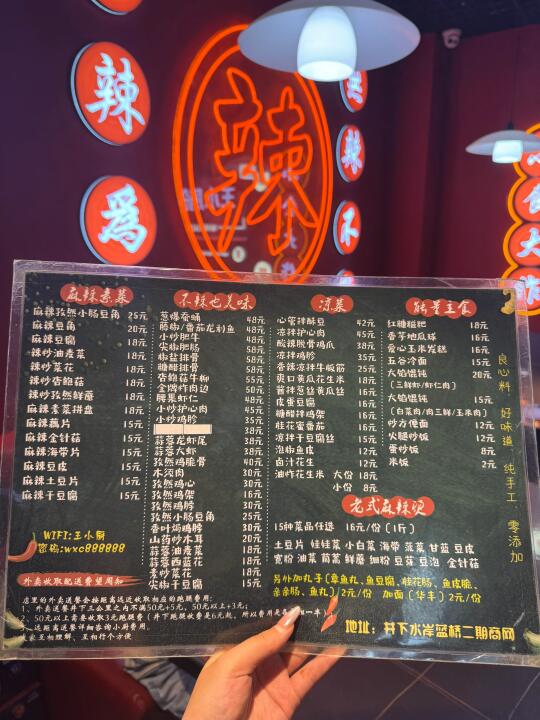 辣
為
辣
辣
不
麻辣素菜
麻辣孜然小肠豆角 25元
麻辣豆角 20元
麻辣豆腐 18元
辣炒油麦菜 18元
辣炒菜花 18元
辣炒杏鲍菇 18元
辣炒孜然鲜蘑 18元
麻辣素菜拼盘 18元
麻辣藕片 15元
麻辣金针菇 15元
麻辣海带片 15元
麻辣豆皮 15元
麻辣土豆片 15元
麻辣干豆腐 15元
WIFI:王小厨
密码:wxc888888
不辣也美味
葱爆蚕蛹 48元
藤椒/番茄龙利鱼 48元
小炒肥牛 48元
尖椒肥肠 58元
椒盐排骨 58元
糖醋排骨 58元
杏鲍菇牛柳 55元
金牌炸肉边 50元
腰果虾仁 48元
小炒护心肉 45元
小炒鸡胗 35元
38元
蒜蓉龙虾尾 38元
蒜蓉大虾 38元
孜然鸡脆骨 40元
木须肉 30元
孜然鸡心 30元
孜然鸡架 16元
孜然鸡胗 30元
孜然小肠豆角 25元
香叶焗鸡翅 30元
山药炒木耳 20元
蒜蓉油麦菜 18元
蒜蓉西蓝花 18元
素炒菜花 18元
尖椒干豆腐 15元
凉菜
心蜜拌酥豆 42元
凉拌护心肉 45元
酸辣脱骨鸡爪 38元
凉拌鸡胗 35元
香辣凉拌牛板筋 25元
爽口黄瓜花生米 18元
酱拌葱丝黄瓜丝 18元
皮蛋豆腐 16元
糖醋拌鸡架 16元
桂花蜜番茄 16元
凉拌干豆腐丝 15元
泡椒鱼皮 12元
卤汁花生 12元
油炸花生米 大份 18元
小份 8元
能量主食
红糖糍粑 18元
香芋地瓜球 16元
爱心玉米发糕 16元
五谷冷面 15元
大馅馄饨 20元
(三鲜虾/虾仁肉)
大馅馄饨 15元
(白菜肉/肉三鲜/玉米肉)
炒方便面 12元
火腿炒饭 12元
蛋炒饭 8元
米饭 2元
良心料 好味道 纯手工 零添加
老式麻辣烫
15种菜品任选 16元/份(1斤)
土豆片 娃娃菜 小白菜 海带 菠菜 甘蓝 豆皮
宽粉 油菜 茼蒿 鲜蘑 细粉 豆芽 豆泡 金针菇
另外加丸子(章鱼丸、鱼豆腐、桂花肠、鱼皮脆、
亲亲肠、鱼丸)2元/份 加面(华丰)2元/份
地址:井下水岸蓝桥二期商网
外卖收取配送费望周知
店里的外卖餐会按距离远近收取相应的跑腿费用:
1、外卖送餐井下三公里之内不满50元+5元,50元以上+3元;
2、50元以上需要收取3元跑腿费(井下跑腿收费是6元起,所以费用是各承担一半)
远距离送餐详细咨询小厨费用。
大家互相理解、互相行个方便